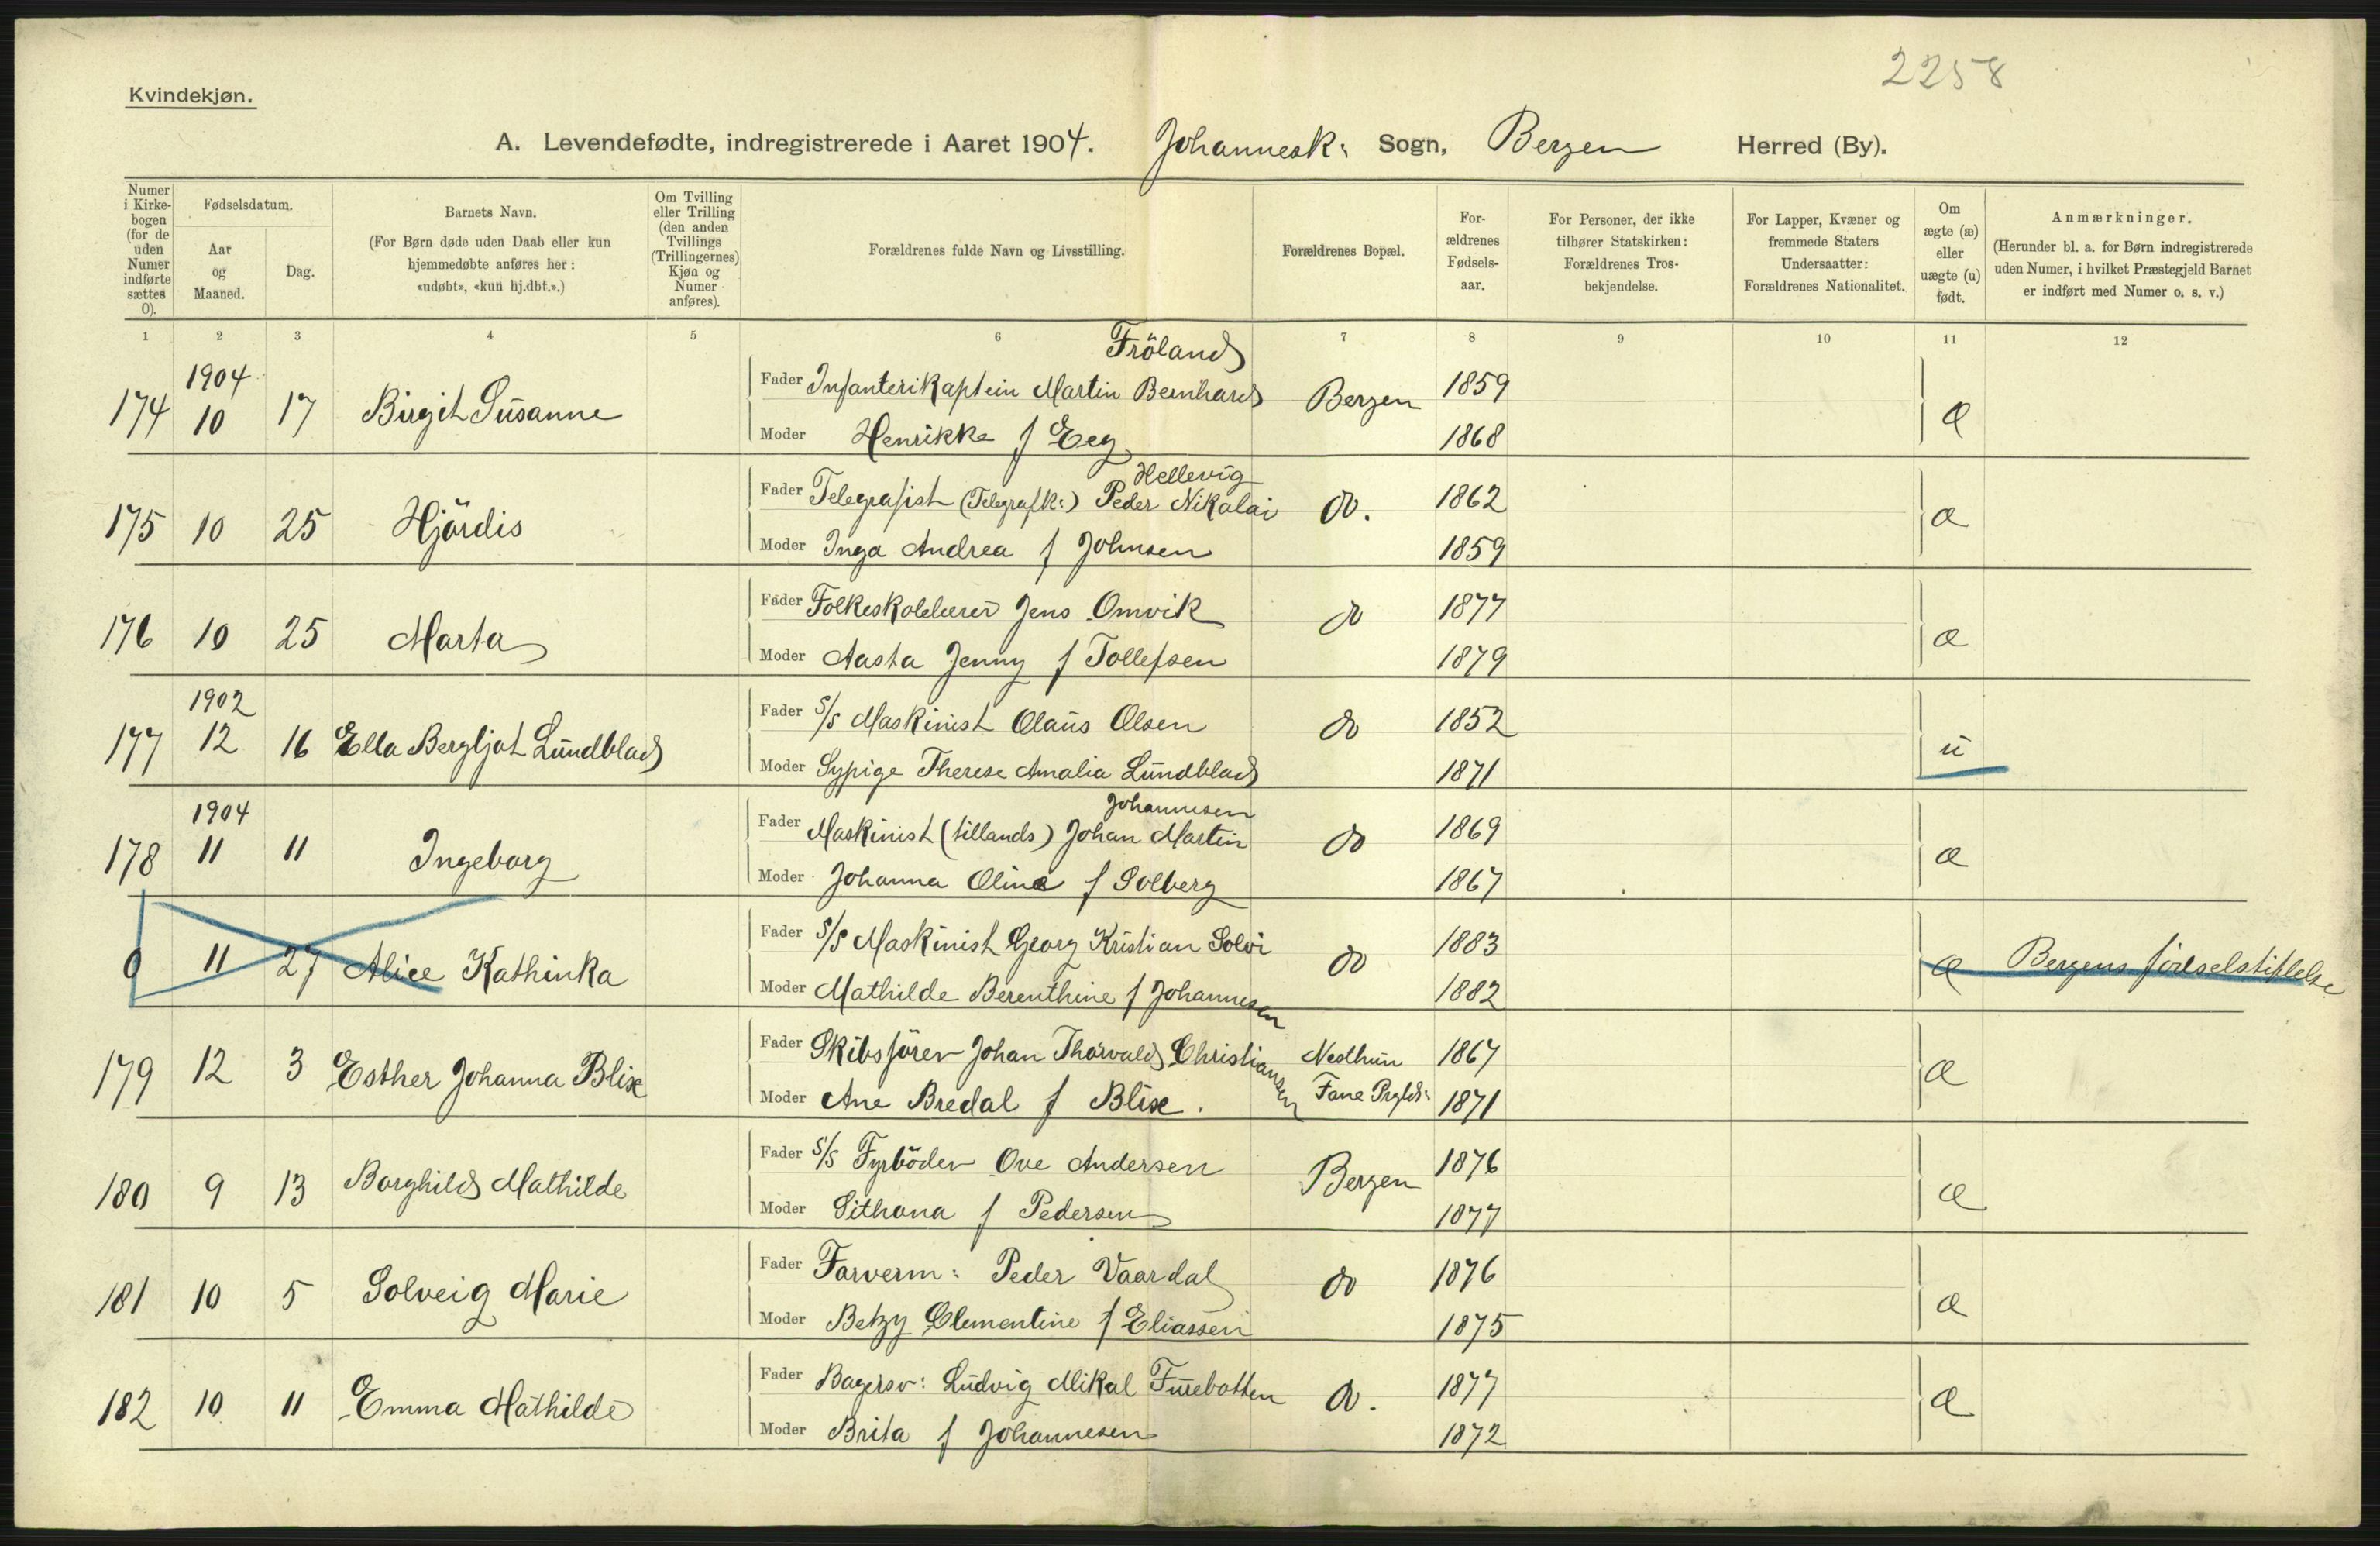 2258
Kvindekjøn.
A. Levendefødte, indregistrerede i Aaret 1904. Johannesk: Sogn, Bergen Herred (By).
Numer i Kirkebogen (for de uden Numer indførte sættes 0).
Fødselsdatum.
Aar og Maaned.
Dag.
Barnets Navn.
(For Børn døde uden Daab eller kun hjemmedøbte anføres her: «udøbt», «kun hj.dbt.».)
Om Tvilling eller Trilling (den anden Tvillings (Trillingernes) Kjøn og Numer anføres).
Forældrenes fulde Navn og Livsstilling.
Forældrenes Bopæl.
Forældrenes Fødselsaar.
For Personer, der ikke tilhører Statskirken: Forældrenes Trosbekjendelse.
For Lapper, Kvæner og fremmede Staters Undersaatter: Forældrenes Nationalitet.
Om ægte (æ) eller uægte (u) født.
Anmærkninger.
(Herunder bl. a. for Børn indregistrerede uden Numer, i hvilket Præstegjeld Barnet er indført med Numer o. s. v.)
1 2 3 4 5 6 7 8 9 10 11 12
Fröland
174 1904 10 17 Birgit Susanne Fader Infanterikaptein Martin Bernhard Bergen 1859 æ
Moder Henrikke f Eeg 1868
Hellevig
175 10 25 Hjördis Fader Telegrafist (Telegrafk:) Peder Nikolai do. 1862 æ
Moder Inga Andrea f Johnsen 1859
176 10 25 Marta Fader Folkeskolelærer Jens Omvik do 1877 æ
Moder Aasta Jenny f Tollefsen 1879
177 1902 12 16 Ella Bergljot Lundblad Fader S/S Maskinist Olaus Olsen do 1852 u
Moder Sypige Therese Amalia Lundblad 1871
Johannesen
178 1904 11 11 Ingeborg Fader Maskinist (tillands) Johan Martin do 1869 æ
Moder Johanna Oline f Solberg 1867
0 11 27 Alice Kathinka Fader S/S Maskinist Georg Kristian Solvi do 1883 æ Bergens födselstiftelse
Moder Mathilde Berenthine f Johannesen 1882
179 12 3 Esther Johanna Blix Fader Skibsförer Johan Thorvald Christiansen Nesthun 1867 æ
Moder Ane Bredal f Blix. Fane Prgld: 1871
180 9 13 Borghild Mathilde Fader S/S Fyrböder Ove Andersen Bergen 1876 æ
Moder Sithana f Pedersen 1877
181 10 5 Solveig Marie Fader Farverm: Peder Vaardal do 1876 æ
Moder Betzy Clementine f Eliassen 1875
182 10 11 Emma Mathilde Fader Bagersv: Ludvig Mikal Furebotten do. 1877 æ
Moder Brita f Johannesen 1872